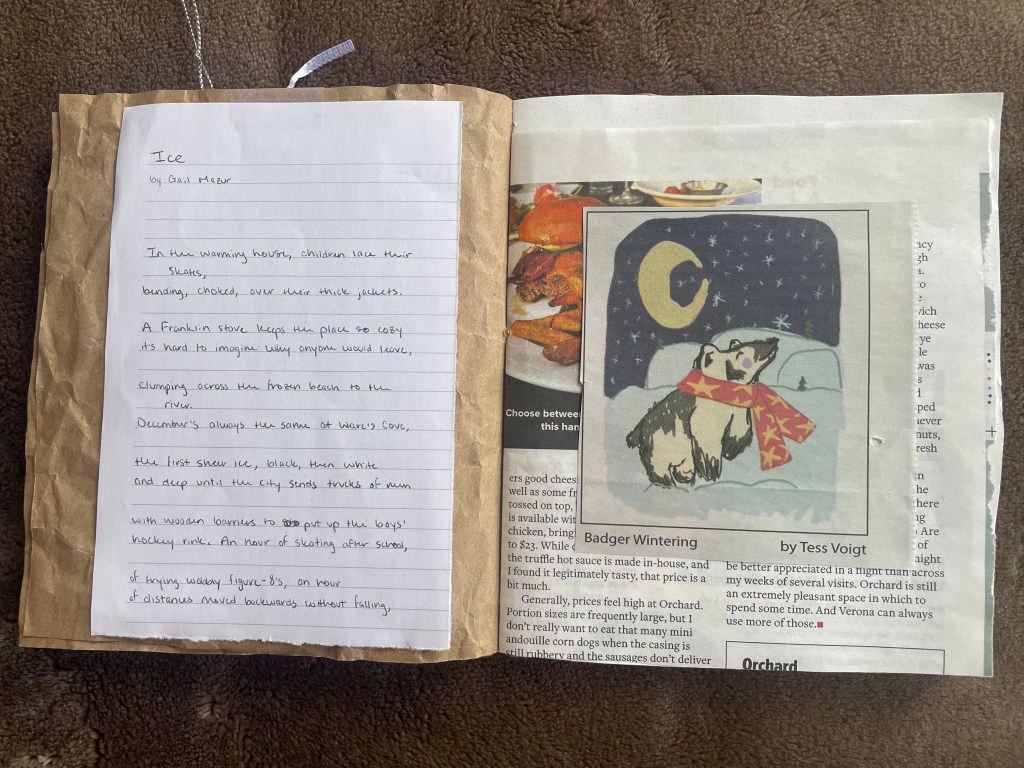 Ice
by Gail Mazur
In the warming house, children lace their
skates,
bending, choked, over their thick jackets.
A Franklin stove keeps the place so cozy
it's hard to imagine why anyone would leave,
clumping across the frozen beach to the
river.
December's always the same at Ware's Cove,
the first sheer ice, black, then white
and deep until the city sends trucks of men
with wooden barriers to put up the boys'
hockey rink. An hour of skating after school,
of trying wobbly figure-8's, an hour
of distances moved backwards without falling,
Food
Choose between
this han
Badger Wintering
by Tess Voigt
ers good chees
well as some fr
tossed on top,
is available wit
chicken, bring
to $23. While
the truffle hot sauce is made in-house, and
I found it legitimately tasty, that price is a
bit much.
Generally, prices feel high at Orchard.
Portion sizes are frequently large, but I
don't really want to eat that many mini
andouille corn dogs when the casing is
still rubbery and the sausages don't deliver
ncy
gh
a.
o
e
wich
cheese
ye
le
was
s
d
ped
never
nuts,
resh
n
he
here
ng
Are
of
night
be better appreciated in a flight than across
my weeks of several visits. Orchard is still
an extremely pleasant space in which to
spend some time. And Verona can always
use more of those.
Orchard